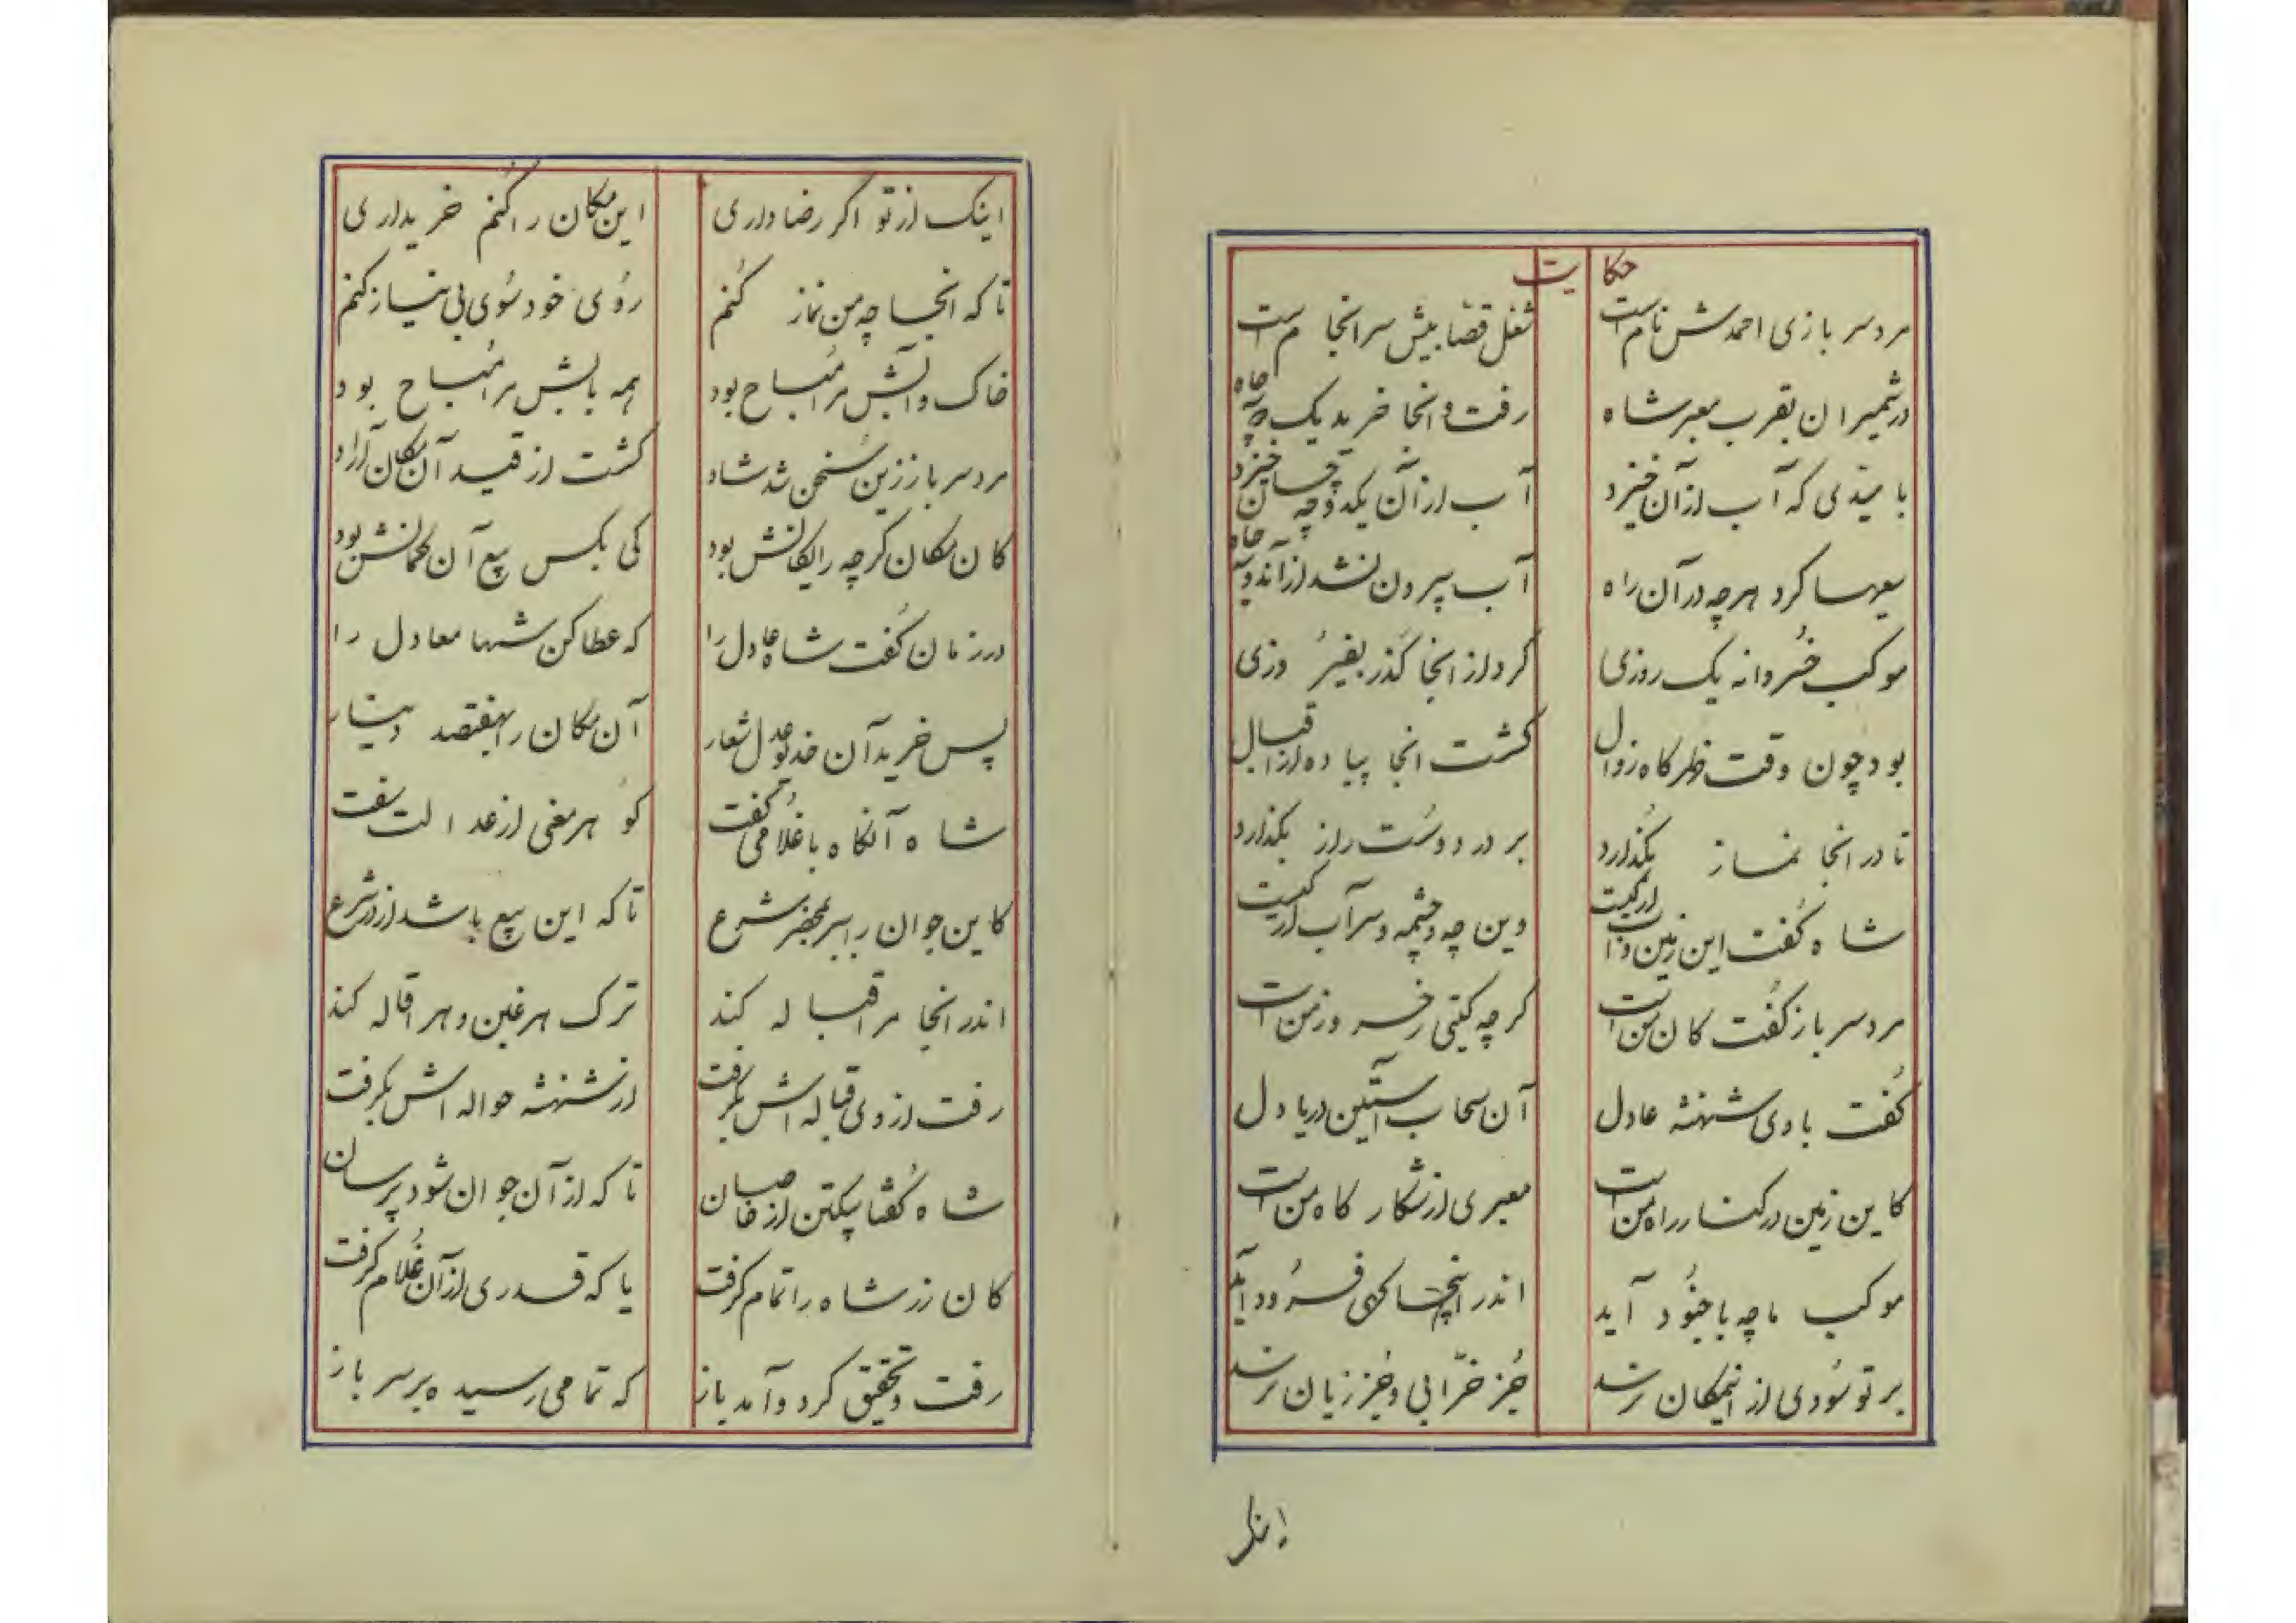 حکایت
مرد سربازی احمدش نام است شغل قصابیش سرانجام است
در شمیران بقرب معبر شاه رفت و انجا خرید یک دو چاه
با میدی که آب از آن خیزد آب از آن یکدوچه چسان خیزد
سعیها کرد هرچه در آن راه آب بیرون نشد از آندو چاه
موکب خسروانه یک روزی کرد از انجا گذر بفیروزی
بود چون وقت ظهر کاه زوال کشت انجا پیاده از اقبال
تا در انجا نماز بگذارد بر در دوست راز بگذارد
شاه گفت این زمین و آب از کیست وین چه و چشمه و سرآب از کیست
مرد سرباز گفت کان من است کرچه کیتی ز خسرو زمن است
گفت با وی شهنشه عادل آن سحاب آستین دریا دل
کاین زمین در کنار راه من است معبری از شکار کاه من است
موکب ما چه با جنود آید اندر اینجا کهی فرود آید
بر تو سودی از اینمکان نرسد جز خرابی و جز زیان نرسد
اینک
اینک از تو اکر رضا داری این مکان را کنم خریداری
تا که انجا چه من نماز کنم روی خود سوی بی نیاز کنم
خاک و آبش مرا مباح بود همه یابش مرا مباح بود
مرد سرباز زین سخن شد شاد کشت از قید آن مکان آزاد
کان مکان کرچه رایکانش بود کی بکس بیع آن کمانش بود
در زمان گفت شاه عادل را که عطا کن شها معادل را
پس خرید آن خدیو عدل شعار آن مکان را بهفتصد دینار
شاه آنکاه با غلامی گفت کو هر معنی از عدالت سفت
کاین جوان را ببر بمحضر شرع تا که این بیع باشد از در شرع
اندر انجا مرا قباله کند ترک هر غبن و هر اقاله کند
رفت از وی قباله اش بکرفت از شهنشه حواله اش بکرفت
شاه گفتا بیکتن از خاصان تا که از آن جوان شود پرسان
کان زر شاه را تمام کرفت یا که قدری از آن غلام کرفت
رفت و تحقیق کرد و آمد باز که تمامی رسیده بر سرباز